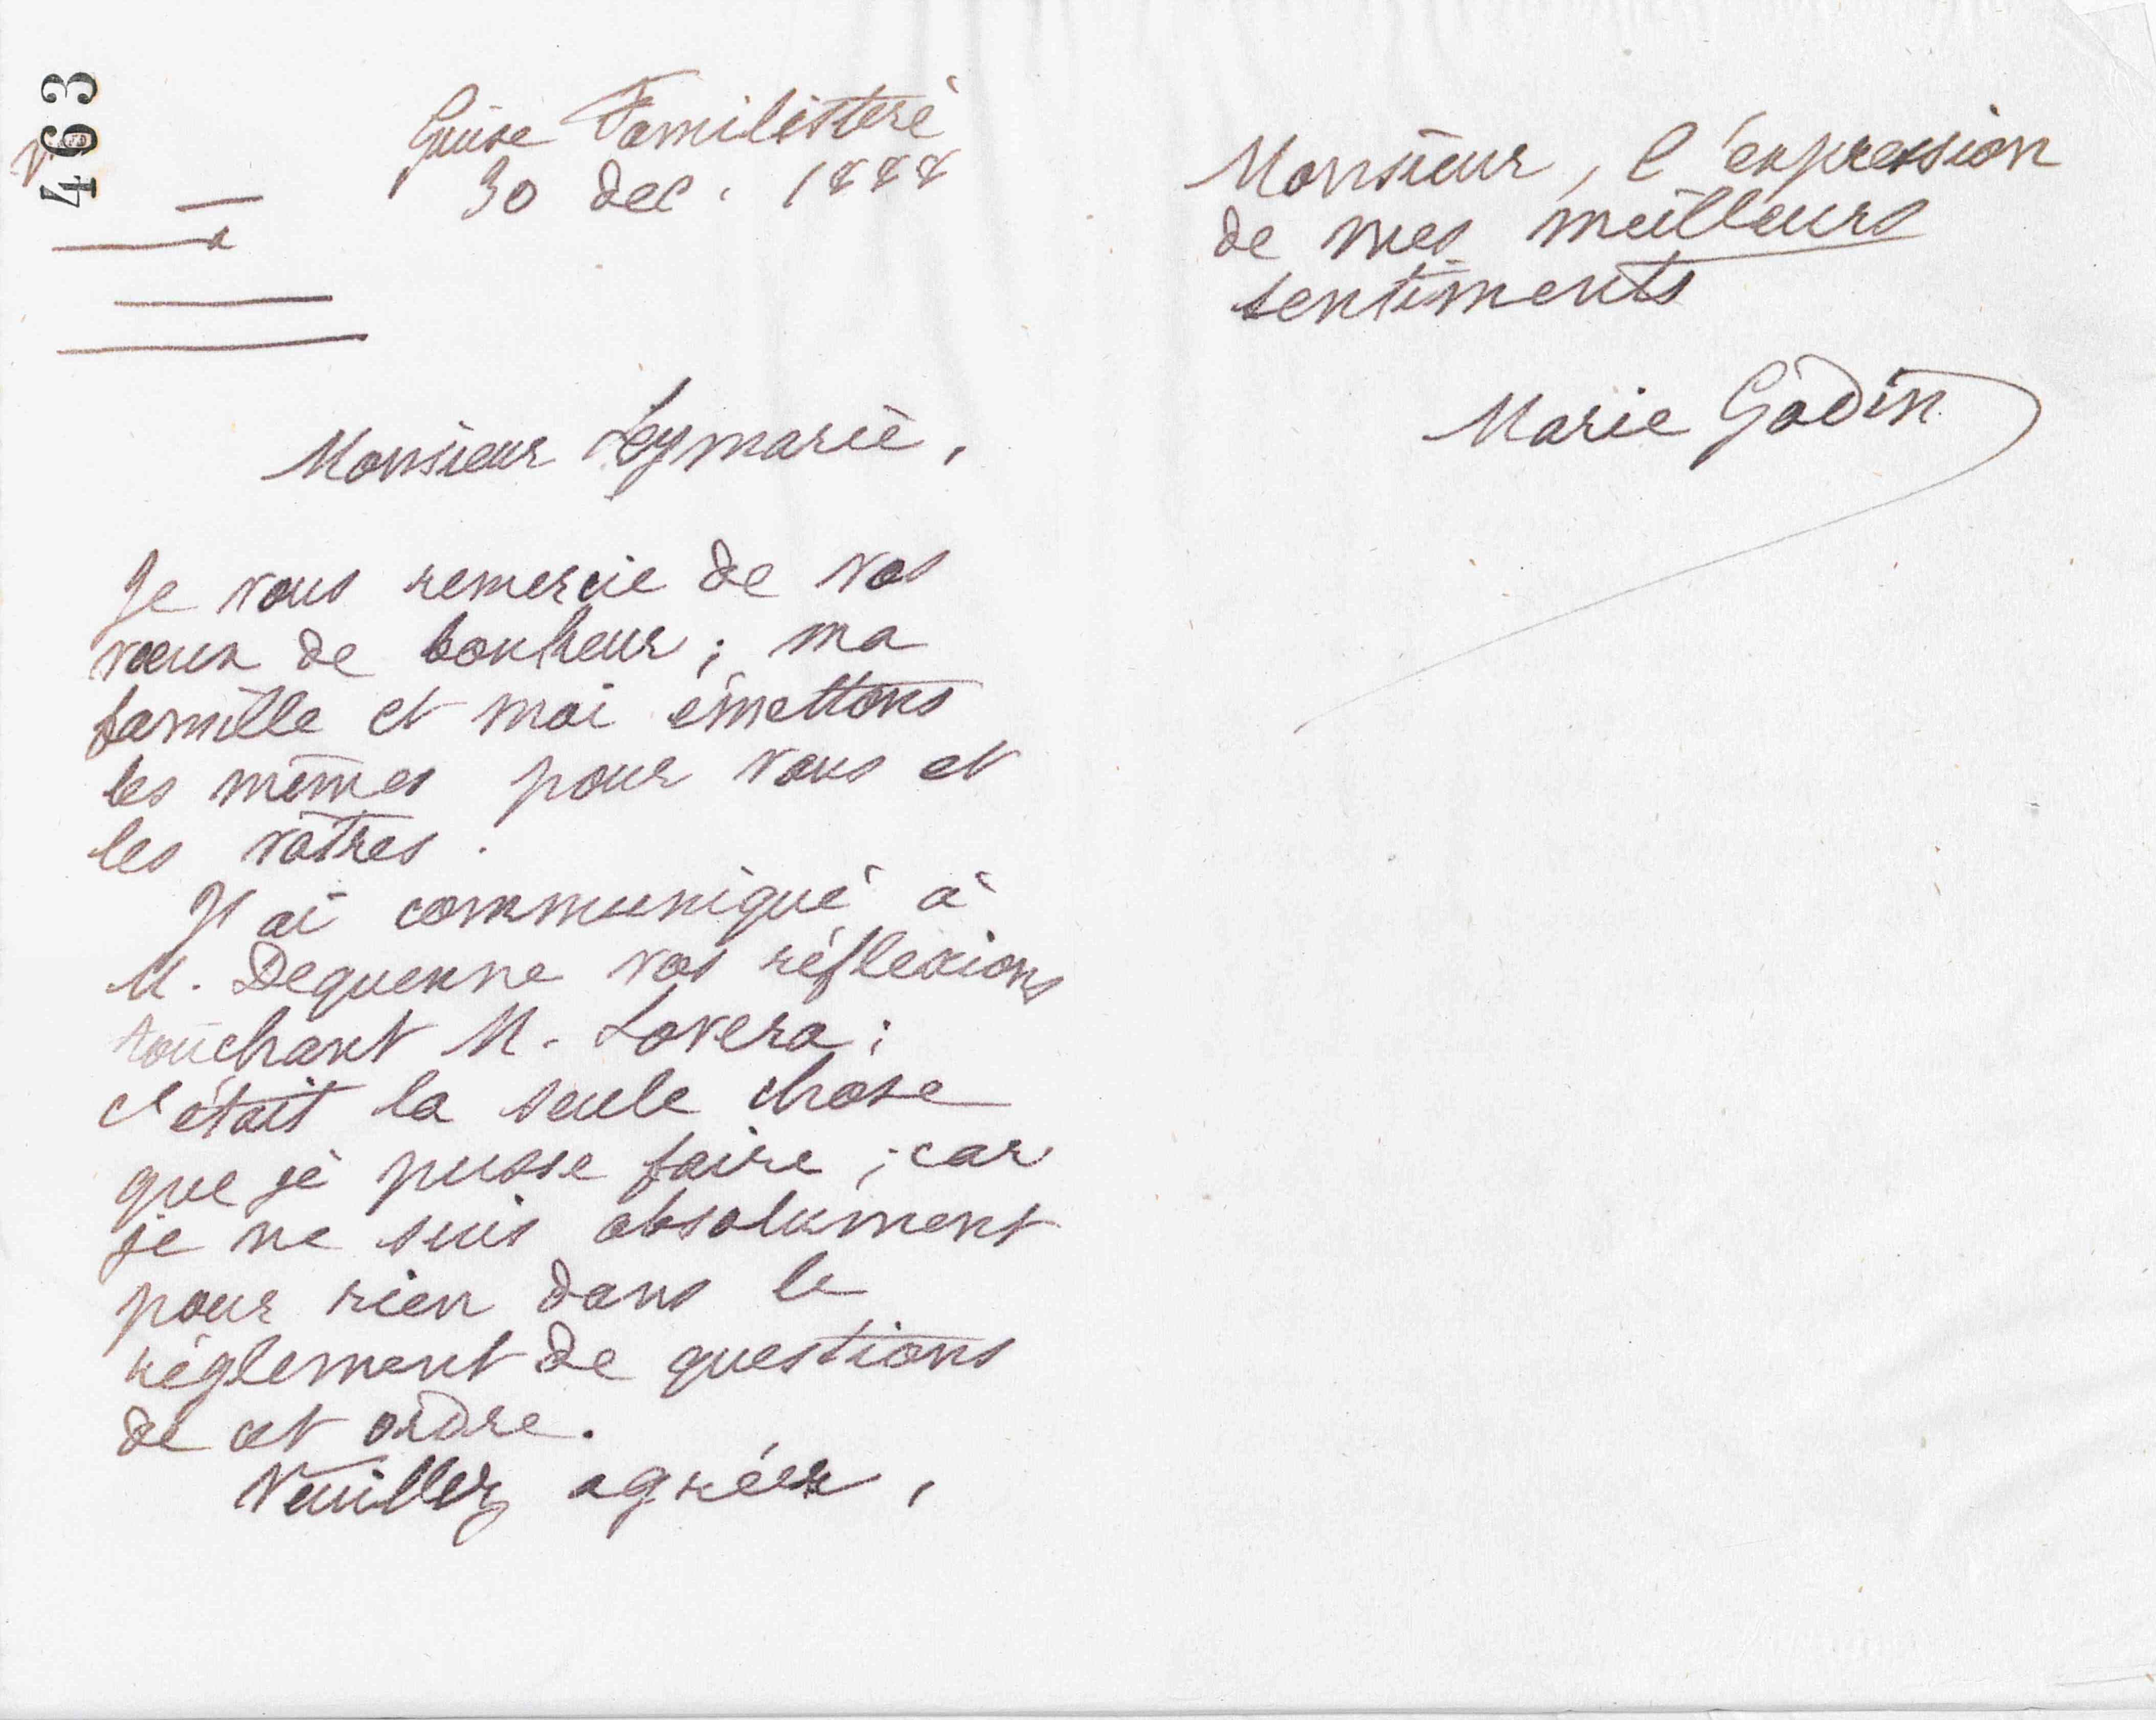 463
Guise Familistère
30 déc. 1888
Monsieur Leymarie,
Je vous remercie de vos
vœux de bonheur ; ma
famille et moi émettons
les mêmes pour vous et
les vôtres.
J'ai communiqué à
M. Dequenne vos réflexions
touchant M. Lovera ;
c'était la seule chose
que je pusse faire ; car
je ne suis absolument
pour rien dans le
règlement de questions
de cet ordre.
Veuillez agréer,
Monsieur, l'expression
de mes meilleurs
sentiments
Marie Godin